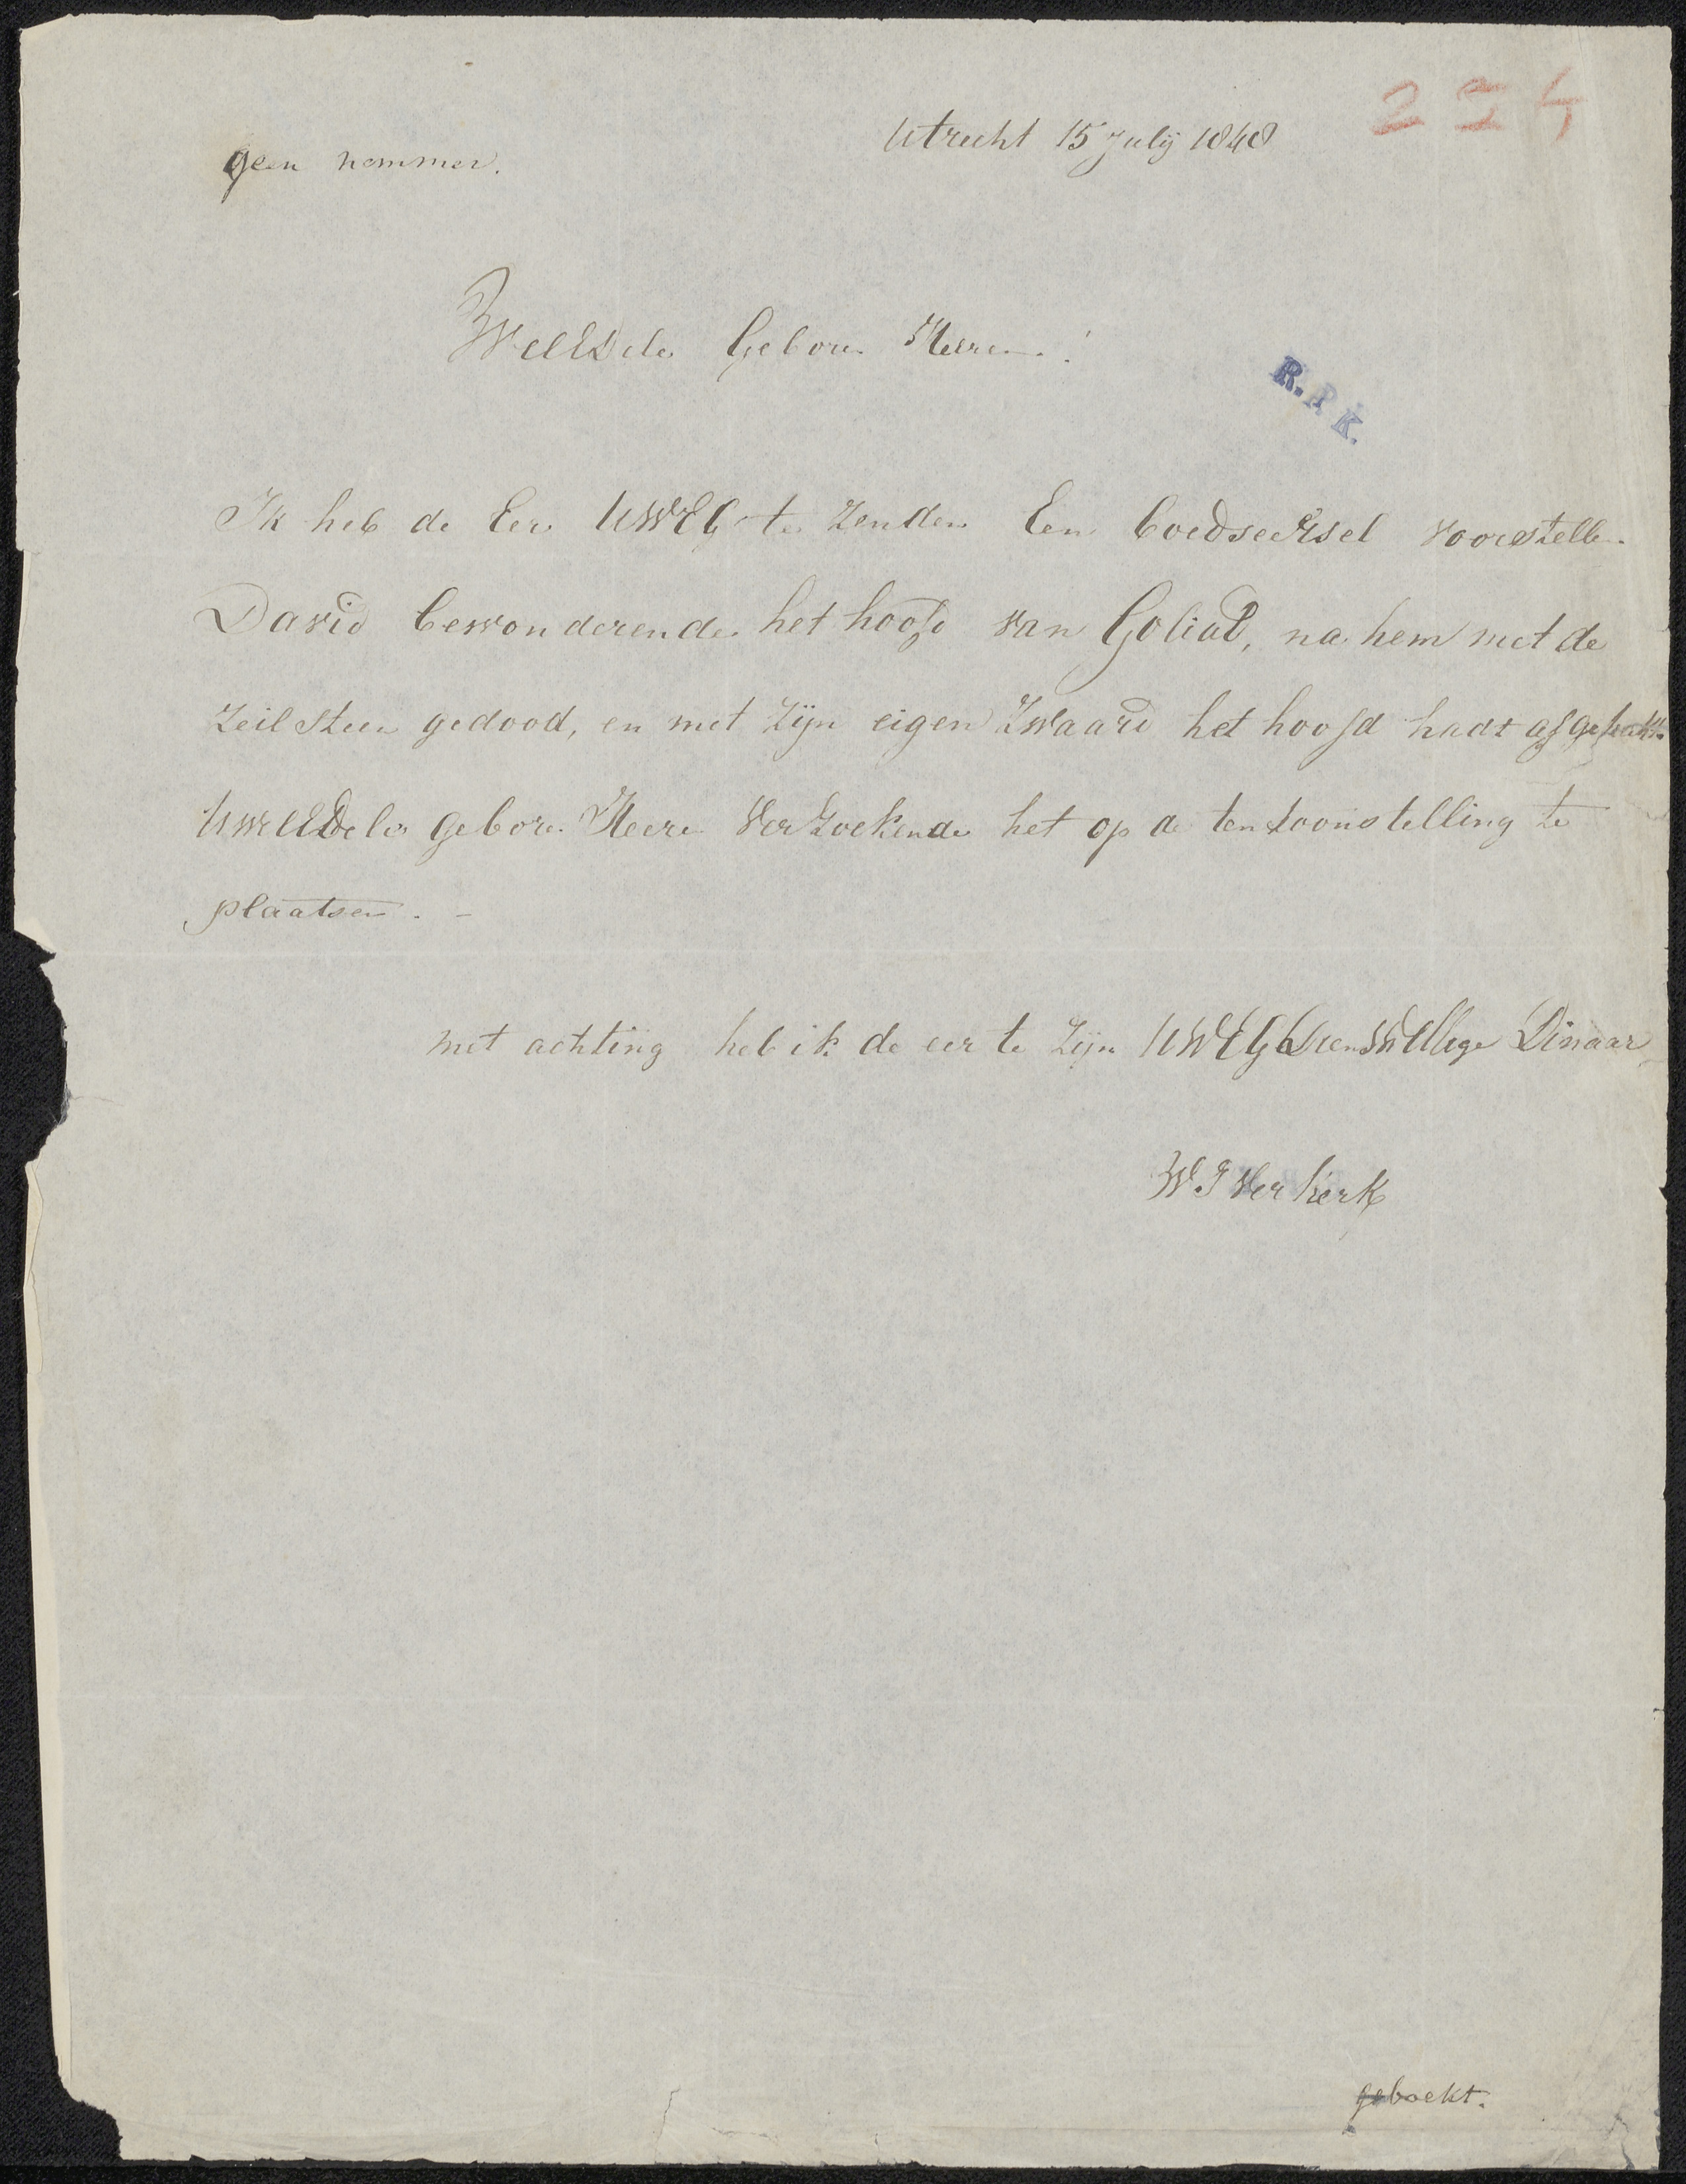 224
Utrecht 15 Julij 1848
geen nommer.
WelEdele Gebore Heeren!
R.P.K.
Ik heb de Eer UWEG te zenden Een boedseersel voorstelle.
David bewonderende het hoofd van Goliad, na hem met de
zeilsteen gedood, en met zijn eigen zwaard het hoofd hadt afgehakt.
UwelEdele gebore Heere Verzoekende het op de tentoonstelling te
plaatsen. -
met achting heb ik de eer te zijn UWEG Dienswillege Dinaar
W J Verkerk
geboekt.